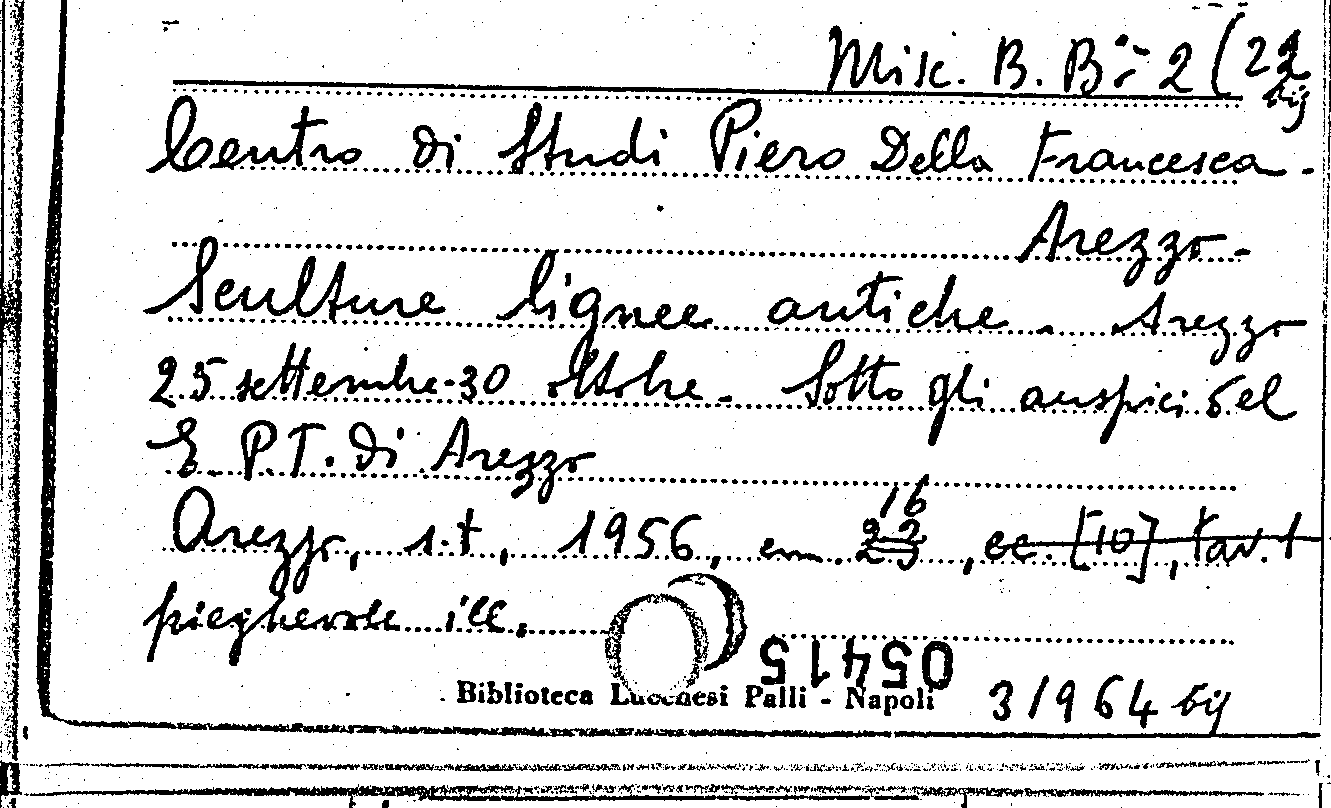 Misc. B. B:- 2 (22
bis
Centro di Studi Piero Della Francesca.
Arezzo.
Sculture lignee antiche. Arezzo
25 settembre-30 ottobre. Sotto gli auspici del
E P.T. di Arezzo
16
Arezzo, s.t, 1956, cm. 23, cc. [10], tav. 1
pieghevole ill.
05415
Biblioteca Lucchesi Palli - Napoli 31964 bis